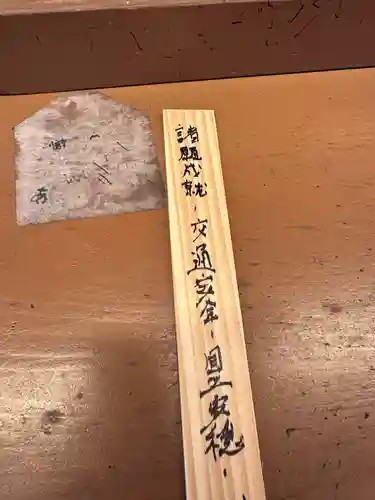 諸願成就・交通安全・国土安穏・